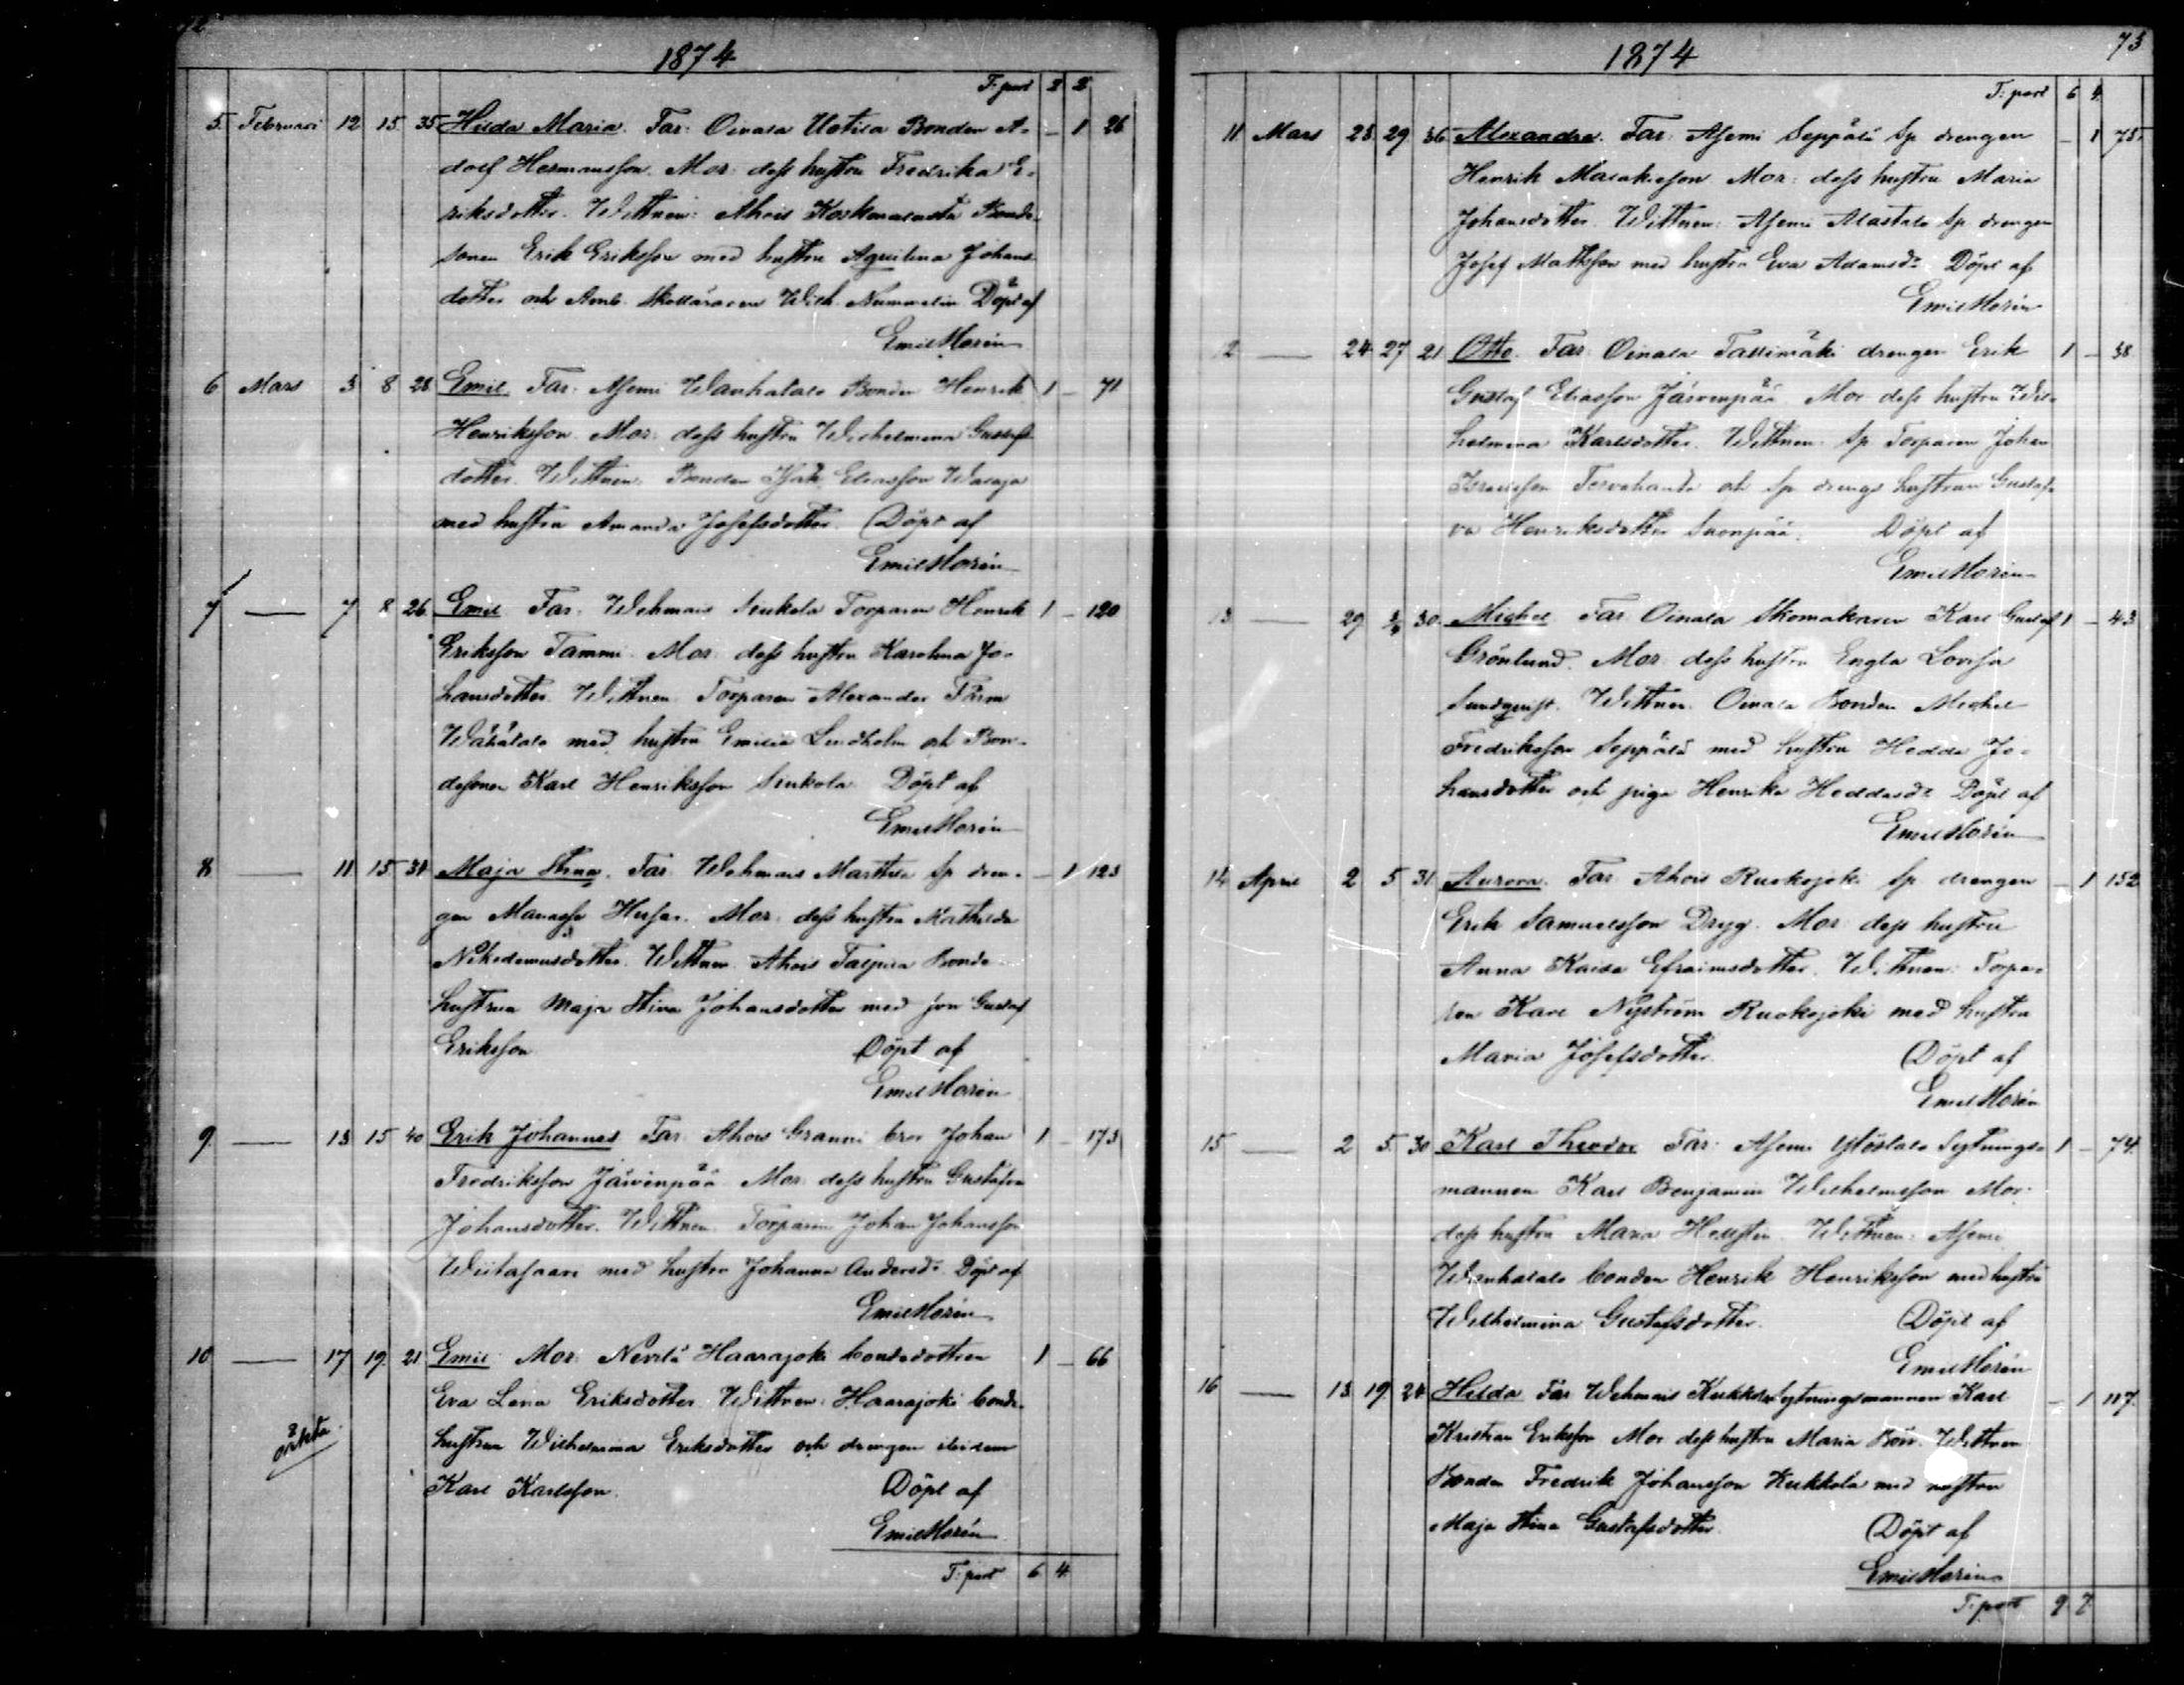 72
1874
T: port 2 2
5. Februari 12 15 35 Hilda Maria. Far: Oinala Uotila Bonden A- – 1 26
dolf Hermansson. Mor: dess hustru Fredrika E-
riksdotter. Wittnen: Ahois Bonde-
sonen Erik Eriksson med hustru Aqvilina Johans-
dotter och Wilh. Nummelin. Döpt af
Emil Horén
6 Mars 3 8 28 Emil. Far: Asemi Wanhatalo Bonden Henrik 1 – 71
Henriksson. Mor: dess hustru Wilhelmina Gustafs-
dotter. Wittnen: Bonden Isak Eliasson
med hustru Amanda Josefsdotter. Döpt af
Emil Horén
7 — 7 8 26 Emil Far: Wehmais Torparen Henrik 1 – 120
Eriksson Tammi. Mor: dess hustru Karolina Jo-
hansdotter. Wittnen: Torparen Alexander
Wähätalo med hustru Emilia Lindholm och Bon-
desonen Karl Henriksson Döpt af
Emil Horén
8 — 11 15 31 Maja Stina. Far: Wehmais Marttila Sp. dren- – 1 123
gen Manasse Mor: dess hustru Mathilda
Nikodemusdotter. Wittnen: Ahois Bonde-
hustrun Maja Stina Johansdotter med son Gustaf
Eriksson Döpt af
Emil Horén
9. — 13 15 40 Erik Johannes Far: Ahois Granni bror Johan 1 – 173
Fredriksson Järvenpää Mor: dess hustru Gustafva
Johansdotter. Wittnen: Torparen Johan Johansson
Wiitasaari med hustru Johanna Andersdr. Döpt af
Emil Horén
10 — 17 19. 21 Emil Mor: Nevilä Haarajoki bondedottren 1 – 66
Eva Lena Eriksdotter. Wittnen: Haarajoki bonde-
oäkta
hustrun Wilhelmina Eriksdotter och drengen ibidem
Karl Karlsson. Döpt af
Emil Horén
T: port 6 4
73
1874
T: port 6 4
11 Mars 28 29 36 Alexandra. Far: Asemi Seppälä Sp. drengen – 1 75
Henrik Malakiesson Mor: dess hustru Maria
Johansdotter. Wittnen: Asemi Alastalo Sp. drengen
Josef Mattsson med hustru Eva Adamsdr. Döpt af
Emil Horén
12 — 24 27 21 Otto. Far: Oinala Tallimäki drengen Erik 1 – 38
Gustaf Eliasson Järvenpää. Mor: dess hustru Wil-
helmina Karlsdotter. Wittnen: Sp. Torparen Johan
Israelsson och Sp. drengs hustrun Gustaf-
va Henriksdotter Suonpää. Döpt af
Emil Horén
13 — 29 3/4 30. Michel. Far: Oinala Skomakaren Karl Gustaf 1 – 43
Grönlund. Mor: dess hustru Engla Lovisa
Sundqvist. Wittnen: Oinala Bonden Michel
Fredriksson Seppälä med hustru Hedda Jo-
hansdotter och piga Henrika Heddasdr. Döpt af
Emil Horén
14 April 2 5 31 Aurora. Far: Ahois Ruokojoki Sp. drengen – 1 152
Erik Samuelsson Dryg. Mor: dess hustru
Anna Kaisa Efraimsdotter. Wittnen: Torpa-
ren Karl Nyström Ruokojoki med hustru
Maria Josefsdotter. Döpt af
Emil Horén
15 — 2 5 30 Karl Theodor Far: Asemi Ylöstalo Sytnings- 1 – 74.
mannen Karl Benjamin Wilhelmsson Mor:
dess hustru Maria Hellstén. Wittnen: Asemi
Wanhatalo bonden Henrik Henriksson med hustru
Wilhelmina Gustafsdotter. Döpt af
Emil Horén
16 — 13 19 24 Hilda Far: Wehmais Kukkola Sytningsmannen Karl – 1 117.
Kristian Eriksson Mor: dess hustru Maria Wittnen
Bonden Fredrik Johansson Kukkola med hustru
Maja Stina Gustafsdotter. Döpt af
Emil Horén
T: port 9 7